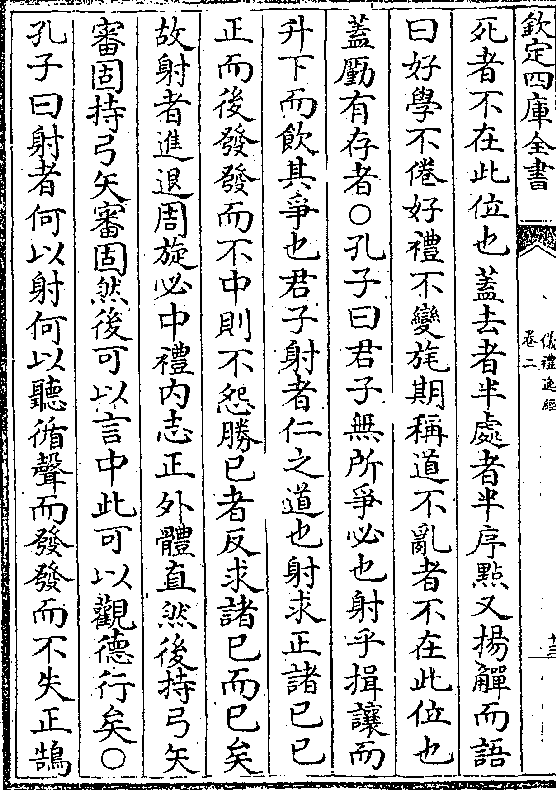 欽定四庫全書
儀禮逸經
卷二
死者不在此位也蓋去者半處者半序點又揚觶而語
曰好學不倦好禮不變旄期稱道不亂者不在此位也
蓋㔢有存者○孔子曰君子無所爭必也射乎揖讓而
升下而飲其爭也君子射者仁之道也射求正諸已已
正而後發發而不中則不怨勝已者反求諸已而已矣
故射者進退周旋必中禮内志正外體直然後持弓矢
審固持弓矢審固然後可以言中此可以觀德行矣○
孔子曰射者何以射何以聽循聲而發發而不失正鵠